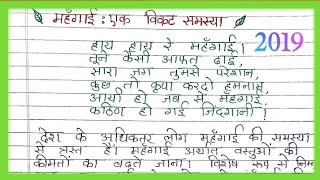 महँगाई : एक विकट समस्या
2019
हाय हाय रे महँगाई !
तूने कैसी आफत ढाई,
सारा जग तुमसे परेशान,
कुछ तो कृपा करदो हमनाम,
आयी हो जब से महँगाई,
कठिन हो गई जिंदगानी !
देश के अधिकतर लोग महँगाई की समस्या
से त्रस्त हैं। महँगाई अर्थात वस्तुओं की
कीमतों का बढ़ते जाना। विशेष रूप से